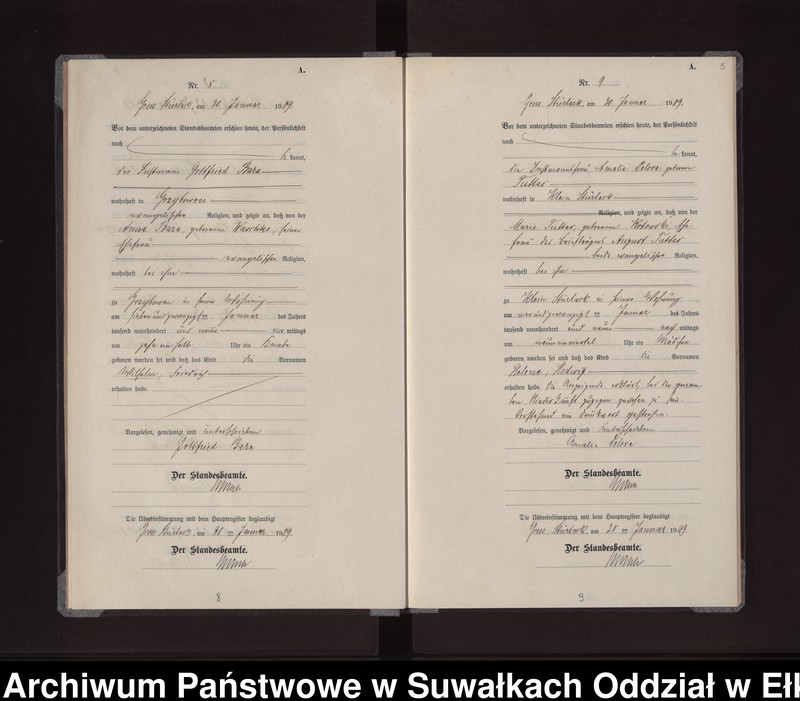 A.
Nr. 8
Gross Stürlack, am 28. Januar 1909.
Vor dem unterzeichneten Standesbeamten erschien heute, der Persönlichkeit
nach
be kannt,
der Instmann Gottfried Bara
wohnhaft in Grzybowen
evangelischer Religion, und zeigte an, daß von der
Anna Bara, geborenen Waschke, seiner
Ehefrau
evangelischer Religion,
wohnhaft bei ihm
zu Grzybowen in seiner Wohnung
am siebenundzwanzigsten Januar des Jahres
tausend neunhundert und neun vor mittags
um zehn einhalb Uhr ein Knabe
geboren worden sei und daß das Kind die Vornamen
Wilhelm, Friedrich
erhalten habe.
Vorgelesen, genehmigt und unterschrieben
Gottfried Bara
Der Standesbeamte.
Die Übereinstimmung mit dem Hauptregister beglaubigt
Gross Stürlack, am 28. Januar 1909.
Der Standesbeamte.
8
A.
5
Nr. 9
Gross Stürlack, am 30. Januar 1909.
Vor dem unterzeichneten Standesbeamten erschien heute, der Persönlichkeit
nach
be kannt,
die Instmannsfrau Amalie geborene
wohnhaft in Klein Stürlack
Religion, und zeigte an, daß von der
Marie geborenen Ehe-
frau des August
beide evangelischer Religion,
wohnhaft bei ihm
zu Klein Stürlack in seiner Wohnung
am vierundzwanzigsten Januar des Jahres
tausend neunhundert und neun nach mittags
um neun einviertel Uhr ein Mädchen
geboren worden sei und daß das Kind die Vornamen
Helene, Hedwig
erhalten habe. Die Anzeigende erklärt, bei der genann-
ten Niederkunft zugegen gewesen zu sein.
Vorstehend ein Druckwort gestrichen.
Vorgelesen, genehmigt und unterschrieben
Amalie
Der Standesbeamte.
Die Übereinstimmung mit dem Hauptregister beglaubigt
Gross Stürlack, am Januar 1909.
Der Standesbeamte.
9
Archiwum Państwowe w Suwałkach Oddział w Ełk